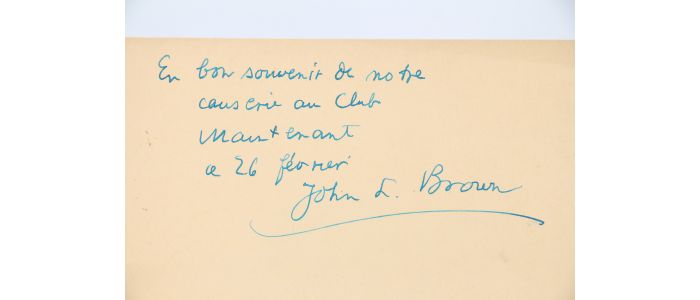 En bon souvenir de notre
causerie au Club
Maintenant
ce 26 février
John L. Brown